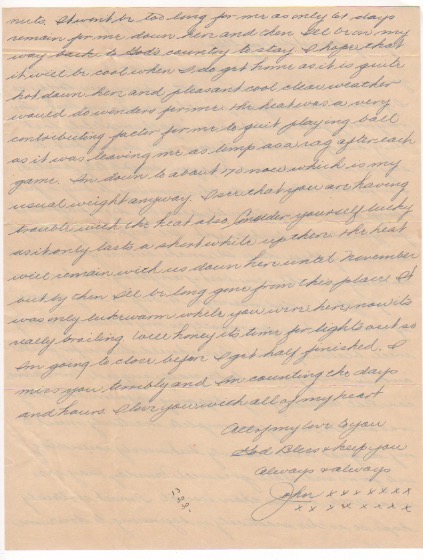 nuts. It wont be too long for me as only 61 days
remain for me down here and then I'll be on my
way back to God's country to stay. I hope that
it will be cool when I do get home as it is quite
hot down here and pleasant cool clear weather
would do wonders for me. the heat was a very
contributing factor for me to quit playing ball
as it was leaving me as limp as a rag after each
game. Im down to about 170 now which is my
usual weight anyway. I see that you are having
trouble with the heat also, Consider yourself lucky
as it only lasts a short while up there the heat
will remain with us down here until November
but by then I'll be long gone from this place. It
was only lukewarm while you were here, now its
really broiling. Well honey its time for lights out so
Im going to close before I get half finished. I
miss you terribly and Im counting the days
and hours I love you with all of my heart
All of my love to you
God Bless & keep you
Always & always
John x x x x x x x
x x x x x x x